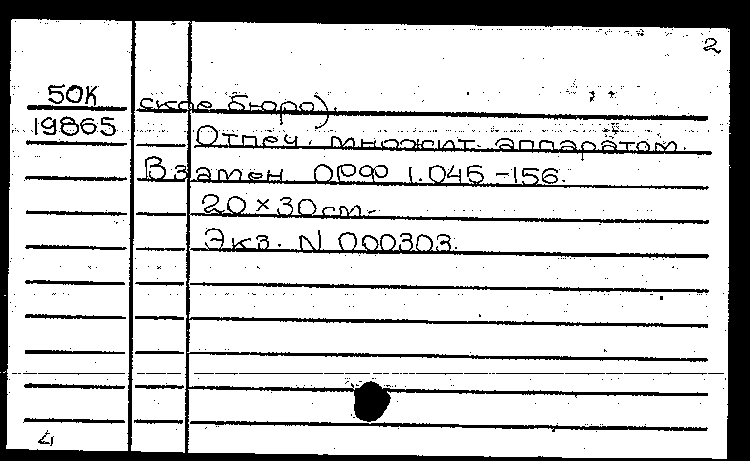 2
50К ское бюро).
19865 Отпеч. множит. аппаратом.
Взамен ОРФ 1.045-156.
20×30 см.
Экз. N 000303.
4